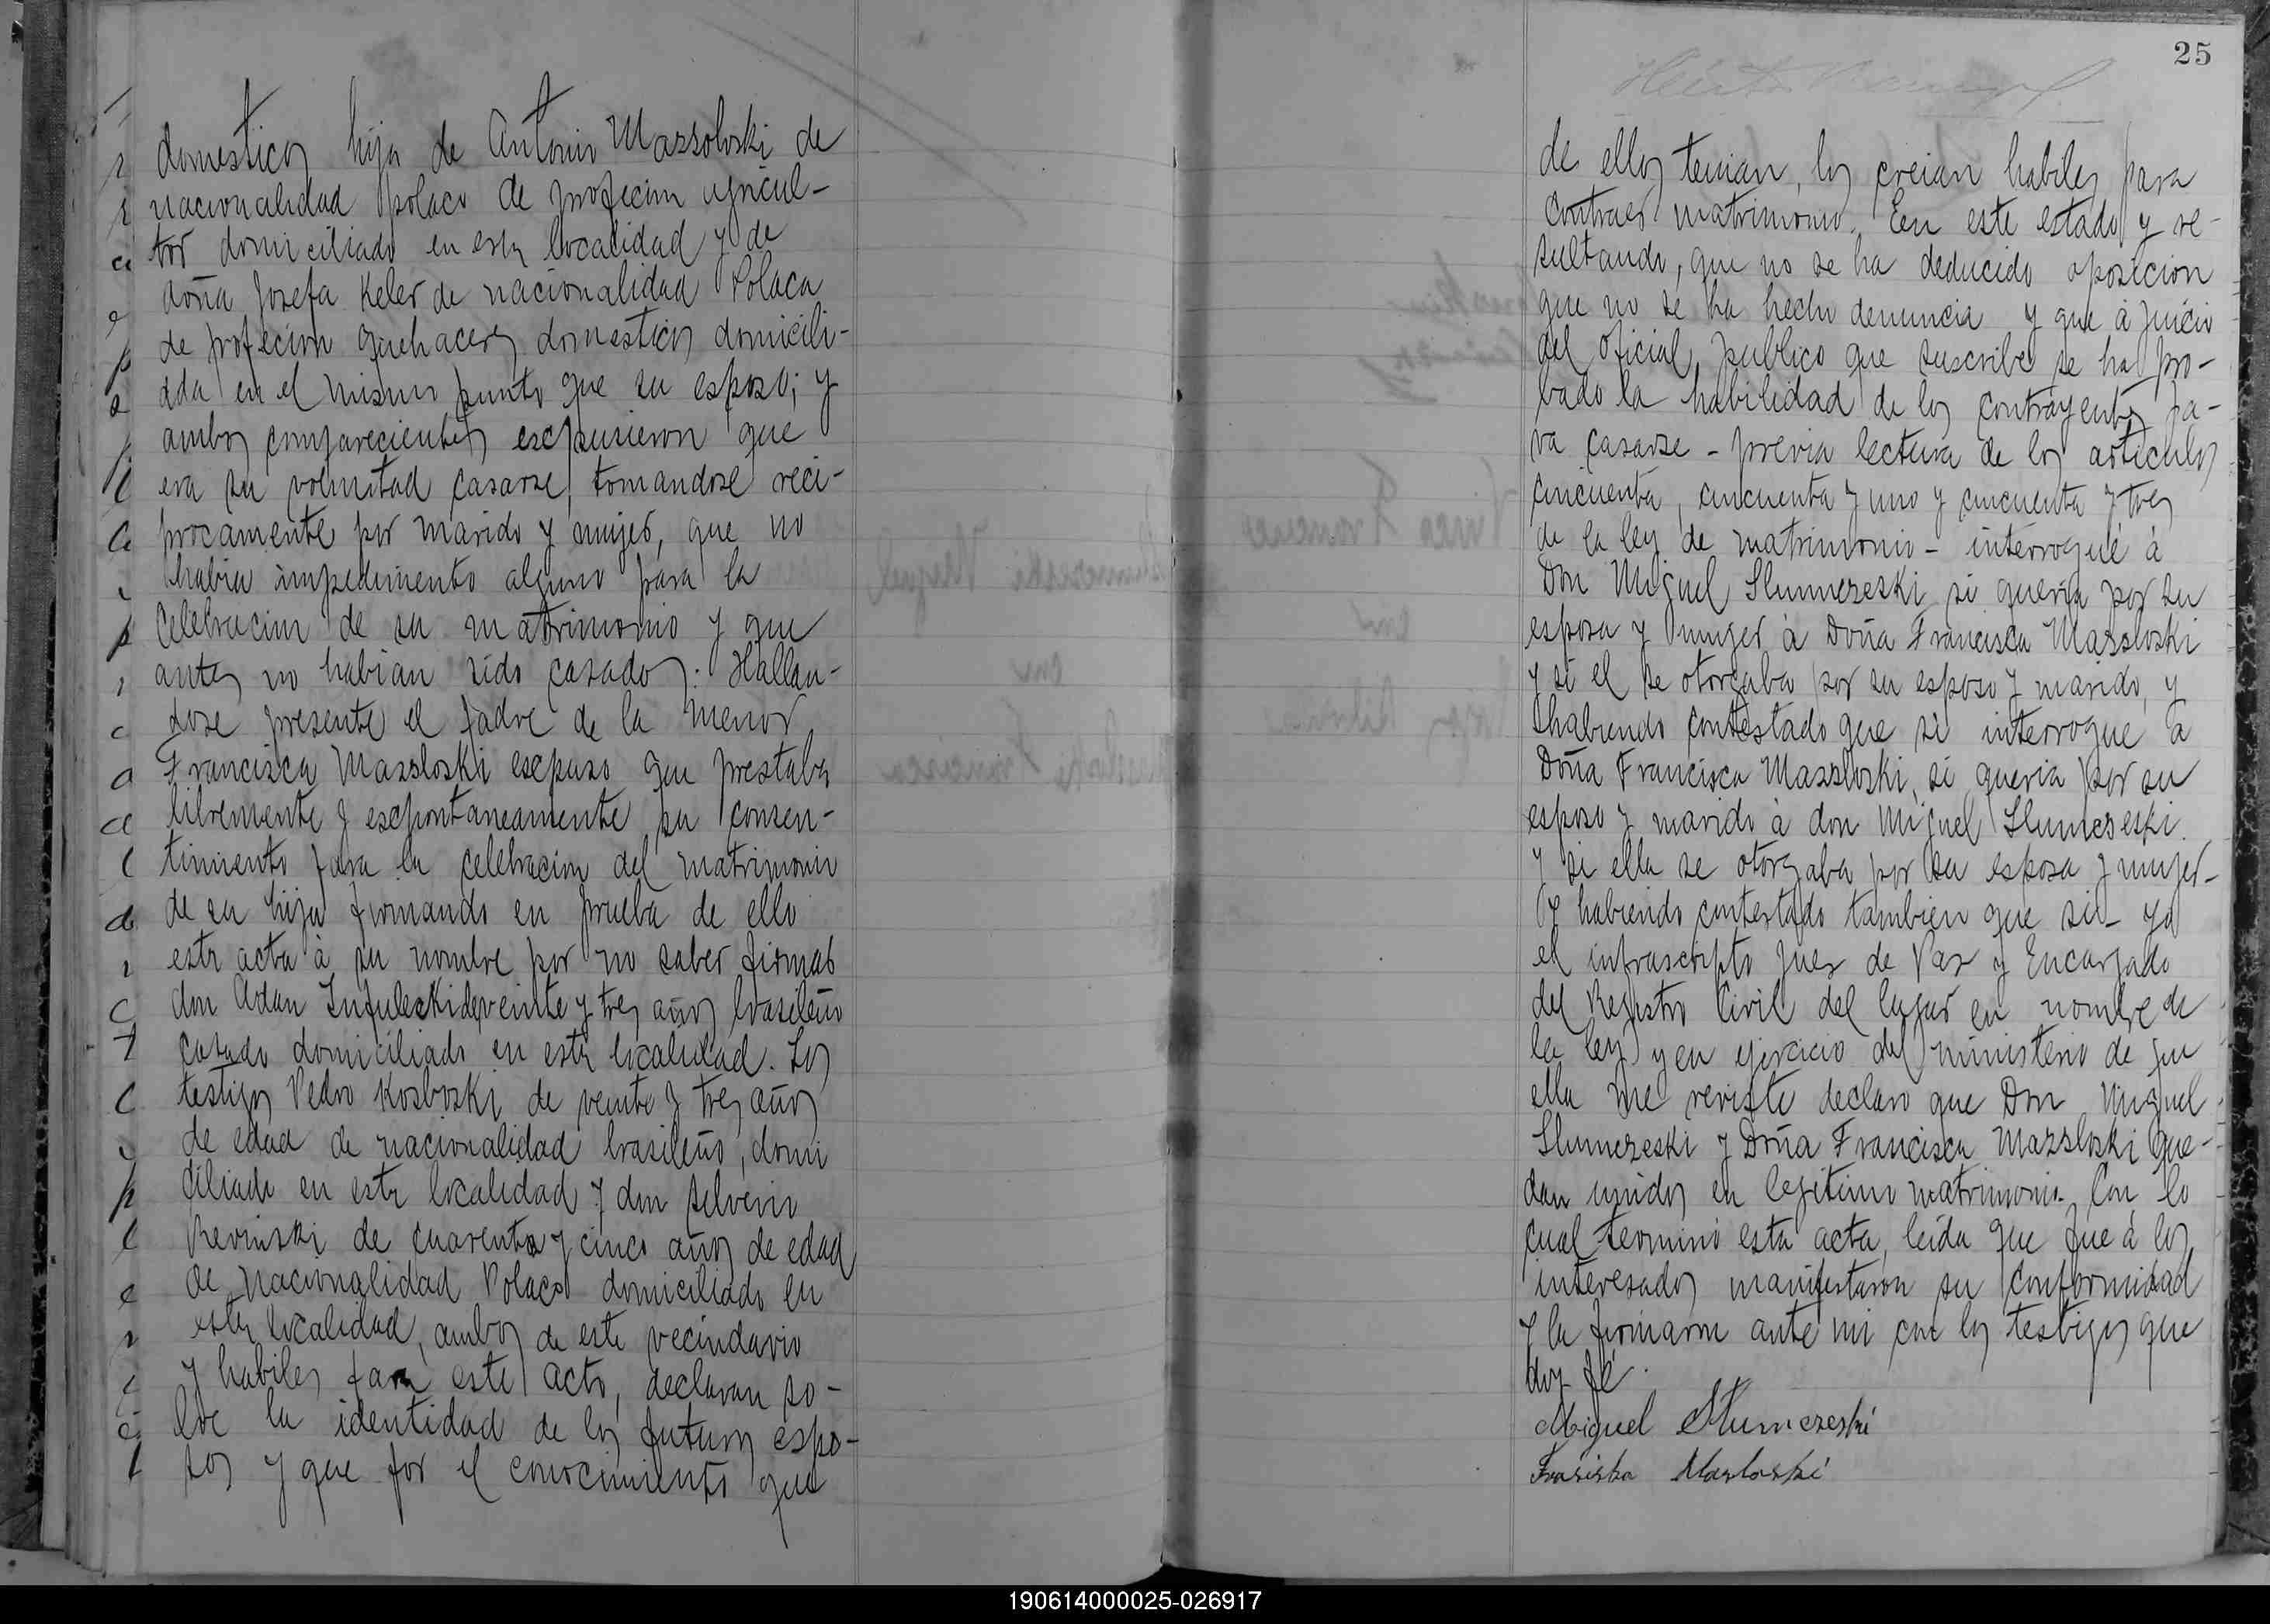 domesticos hija de Antonio Mazsoloski de
nacionalidad polaco de profecion agricul-
tor domiciliado en esta localidad y de
doña Josefa Keler de nacionalidad Polaca
de profecion quehaceres domesticos domicili-
ada en el mismo punto que su esposo; y
ambos comparecientes escpusieron que
era su voluntad casarse, tomandose reci-
procamente por marido y mujer, que no
habia impedimento alguno para la
celebracion de su matrimonio y que
antes no habian sido casados: Hallan-
dose presente el padre de la menor
Francisca Mazsloski escpuso que prestaba
libremente y escpontaneamente su consen-
timiento para la celebracion del matrimonio
de su hija firmando en prueba de ello
esta acta à su nombre por no saber firmar
don Adan de veinte y tres años brasileño
casado domiciliado en esta localidad. Los
testigos Pedro Kosloski de veinte y tres años
de edad de nacionalidad brasileño, domi
ciliado en esta localidad y don Silverio
Revinski de cuarenta y cinco años de edad
de nacionalidad Polaco domiciliado en
esta localidad, ambos de este vecindario
y habiles para este acto, declaran so-
bre la identidad de los futuros espo-
sos y que por el conocimiento que
25
de ellos tenian, los creian habiles para
contraer matrimonio. En este estado y re-
sultando, que no se ha deducido oposicion
que no se ha hecho denuncia y que à juicio
del oficial publico que suscribe se ha pro-
bado la habilidad de los contrayentes pa-
ra casarse - previa lectura de los articulos
cincuenta, cincuenta y uno y cincuenta y tres
de la ley de matrimonio - interrogué à
Don Miguel Slumczeski si queria por su
esposa y muger à Doña Francisca Mazsloski
y si el se otorgaba por su esposo y marido, y
habiendo contestado que si interrogue à
Doña Francisca Mazsloski, si queria por su
esposo y marido à don Miguel Slumczeski.
y si ella se otorgaba por su esposa y mujer-
y habiendo contestado tambien que si - yo
el infrascripto Juez de Paz y Encargado
del Registro Civil del lugar en nombre de
la ley y en ejercicio del ministerio de que
ella me reviste declaro que Don Miguel
Slumczeski y Doña Francisca Mazsloski que-
dan unidos en legitimo matrimonio. Con lo
cual terminó esta acta, leida que fue à los
interesados manifestaron su conformidad
y la firmaron ante mi con los testigos que
doy fé.
Miguel Slumczeski
Frasiska Masloski
190614000025-026917